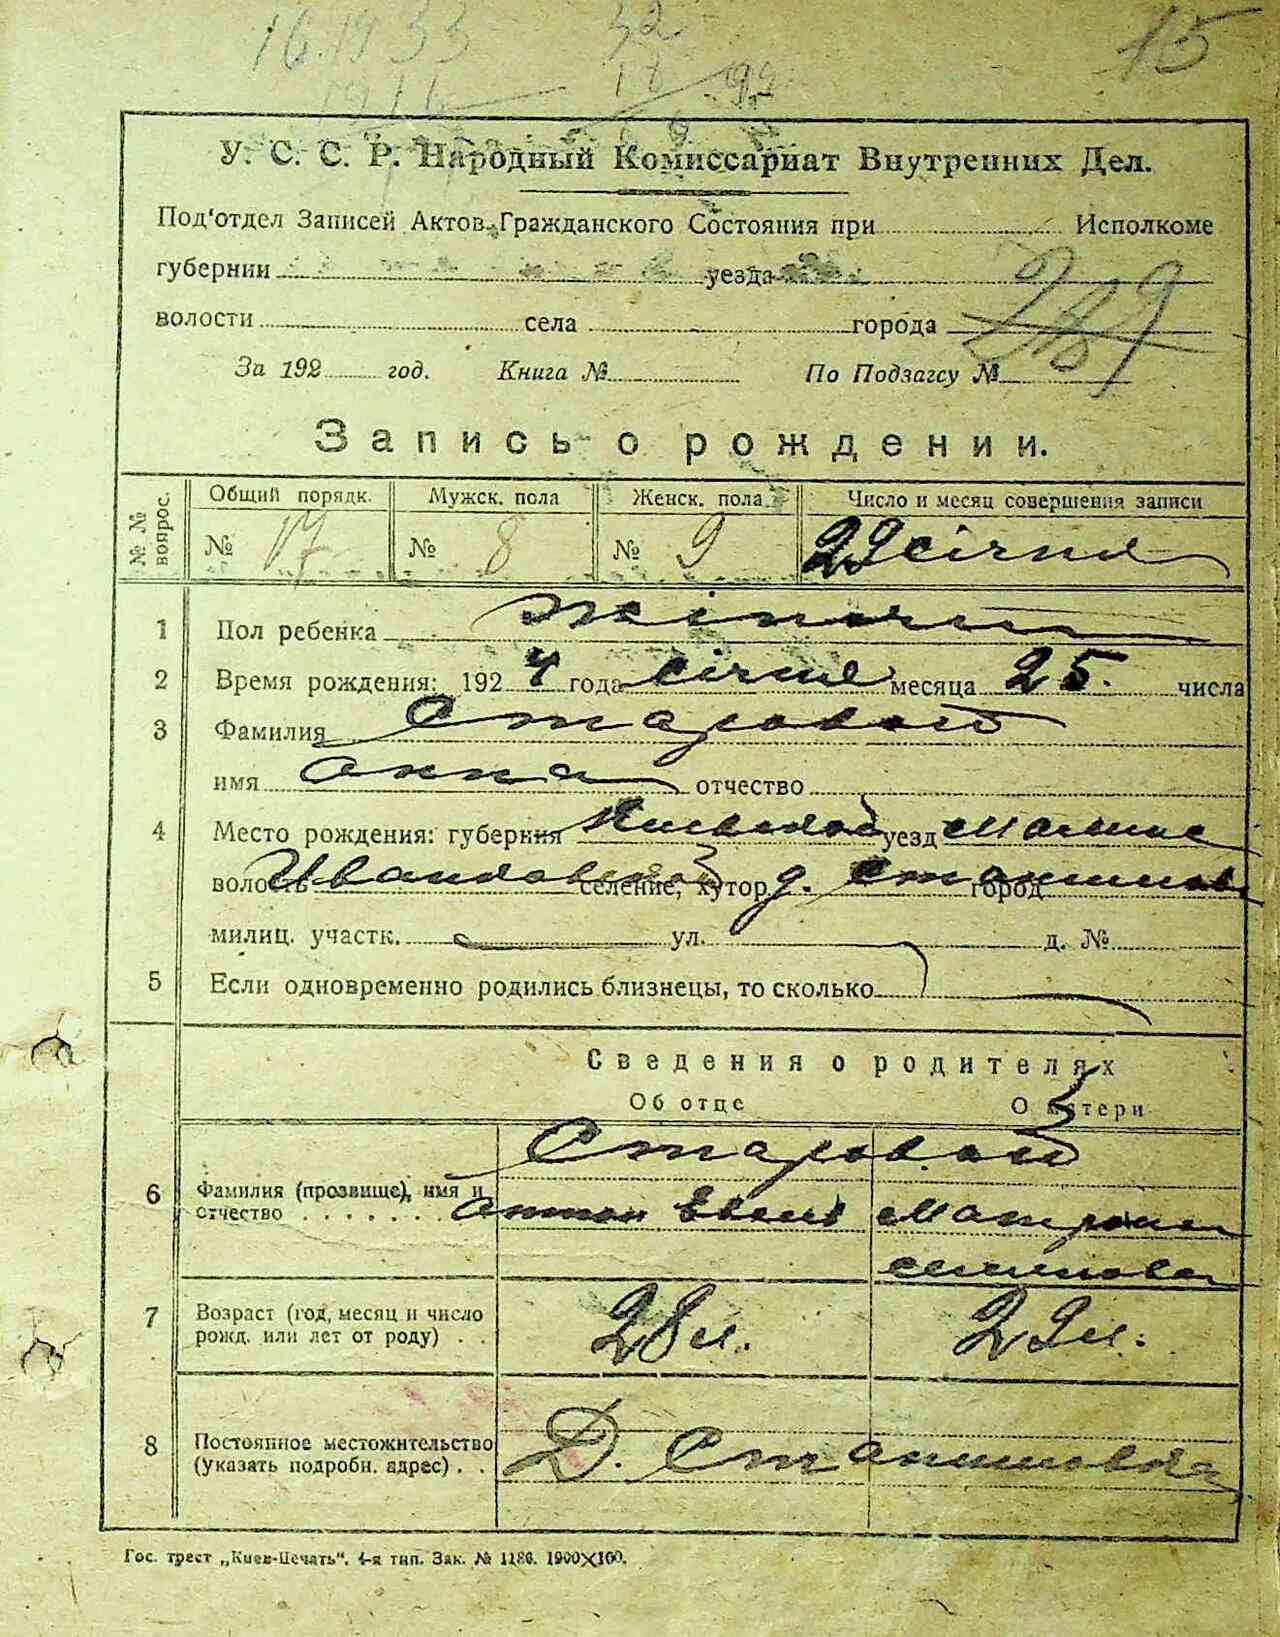 15
16.1933 32
У. С. С. Р. Народный Комиссариат Внутренних Дел.
Под'отдел Записей Актов Гражданского Состояния при Исполкоме
губернии уезда
волости села города
За 192 год. Книга № По Подзагсу №
Запись о рождении.
№ № вопрос. Общий порядк. Мужск. пола Женск. пола Число и месяц совершения записи
№ 17 № 8 № 9 29 січня
1 Пол ребенка жіноча
2 Время рождения: 1924 года січня месяца 25. числа
3 Фамилия Старовойт
имя Анна отчество
4 Место рождения: губерния Киевской уезд Малине
волость Иванковской селение, хутор д. Станишовка город
милиц. участк. ул. д. №
5 Если одновременно родились близнецы, то сколько
Сведения о родителях
Об отце О матери
6 Фамилия (прозвище), имя и Старовойт
отчество . . . . . . . Антон Матрона
7 Возраст (год, месяц и число 28 л. 29 л.
рожд. или лет от роду) . .
8 Постоянное местожительство Д. Станишовка
(указать подробн. адрес) . .
Гос. трест „Киев-Печать“. 4-я тип. Зак. № 1186. 1900×100.